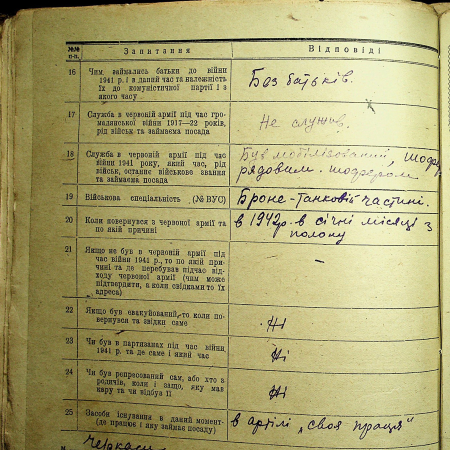 №№ п.п.
Запитання
Відповіді
16
Чим займались батьки до війни
1941 р. і в даний час та належність
їх до комуністичної партії і з
якого часу
Без батьків.
17
Служба в червоній армії під час гро-
мадянської війни 1917—22 років,
рід військ та займаєма посада
Не служив.
18
Служба в червоній армії під час
війни 1941 року, який час, рід
військ, останнє військове звання
та займаєма посада
Був мобілізований, шофер
рядовим. шофером
19
Військова спеціяльність (№ ВУС)
Броне-Танковій частині.
20
Коли повернувся з червоної армії та
по якій причині
в 1942р. в січні місяці з
полону
21
Якщо не був в червоній армії під
час війни 1941 р., то по якій при-
чині та де перебував підчас від-
ходу червоної армії (чим може
підтвердити, а коли свідками то їх
адреса)
–
22
Якщо був евакуйований, то коли по-
вернувся та звідки саме
Ні
23
Чи був в партизанах під час війни
1941 р. та де саме і який час
Ні
24
Чи був репресований сам, або хто з
родичів, коли і защо, яку мав
кару та чи відбув її
Ні
25
Засоби існування в даний момент
(де працює і яку займає посаду)
в артілі „своя праця"